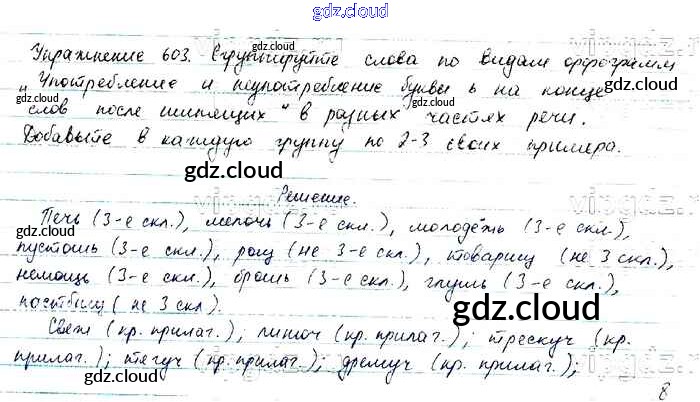 gdz.cloud
Упражнение 603. Сгруппируйте слова по видам орфограмм
"Употребление и неупотребление буквы ь на конце
слов после шипящих" в разных частях речи.
Добавьте в каждую группу по 2-3 своих примера.
Решение.
Печь (3-е скл.), мелочь (3-е скл.), молодёжь (3-е скл.),
пустошь (3-е скл.), рощ (не 3-е скл.), товарищ (не 3 скл.),
немощь (3-е скл.), брошь (3-е скл.), глушь (3-е скл.),
пастбищ (не 3 скл).
Свеж (кр. прилаг.); пигюч (кр. прилаг.); трескуч (кр.
прилаг.); тягуч (кр. прилаг.); дремуч (кр. прилаг.);
8